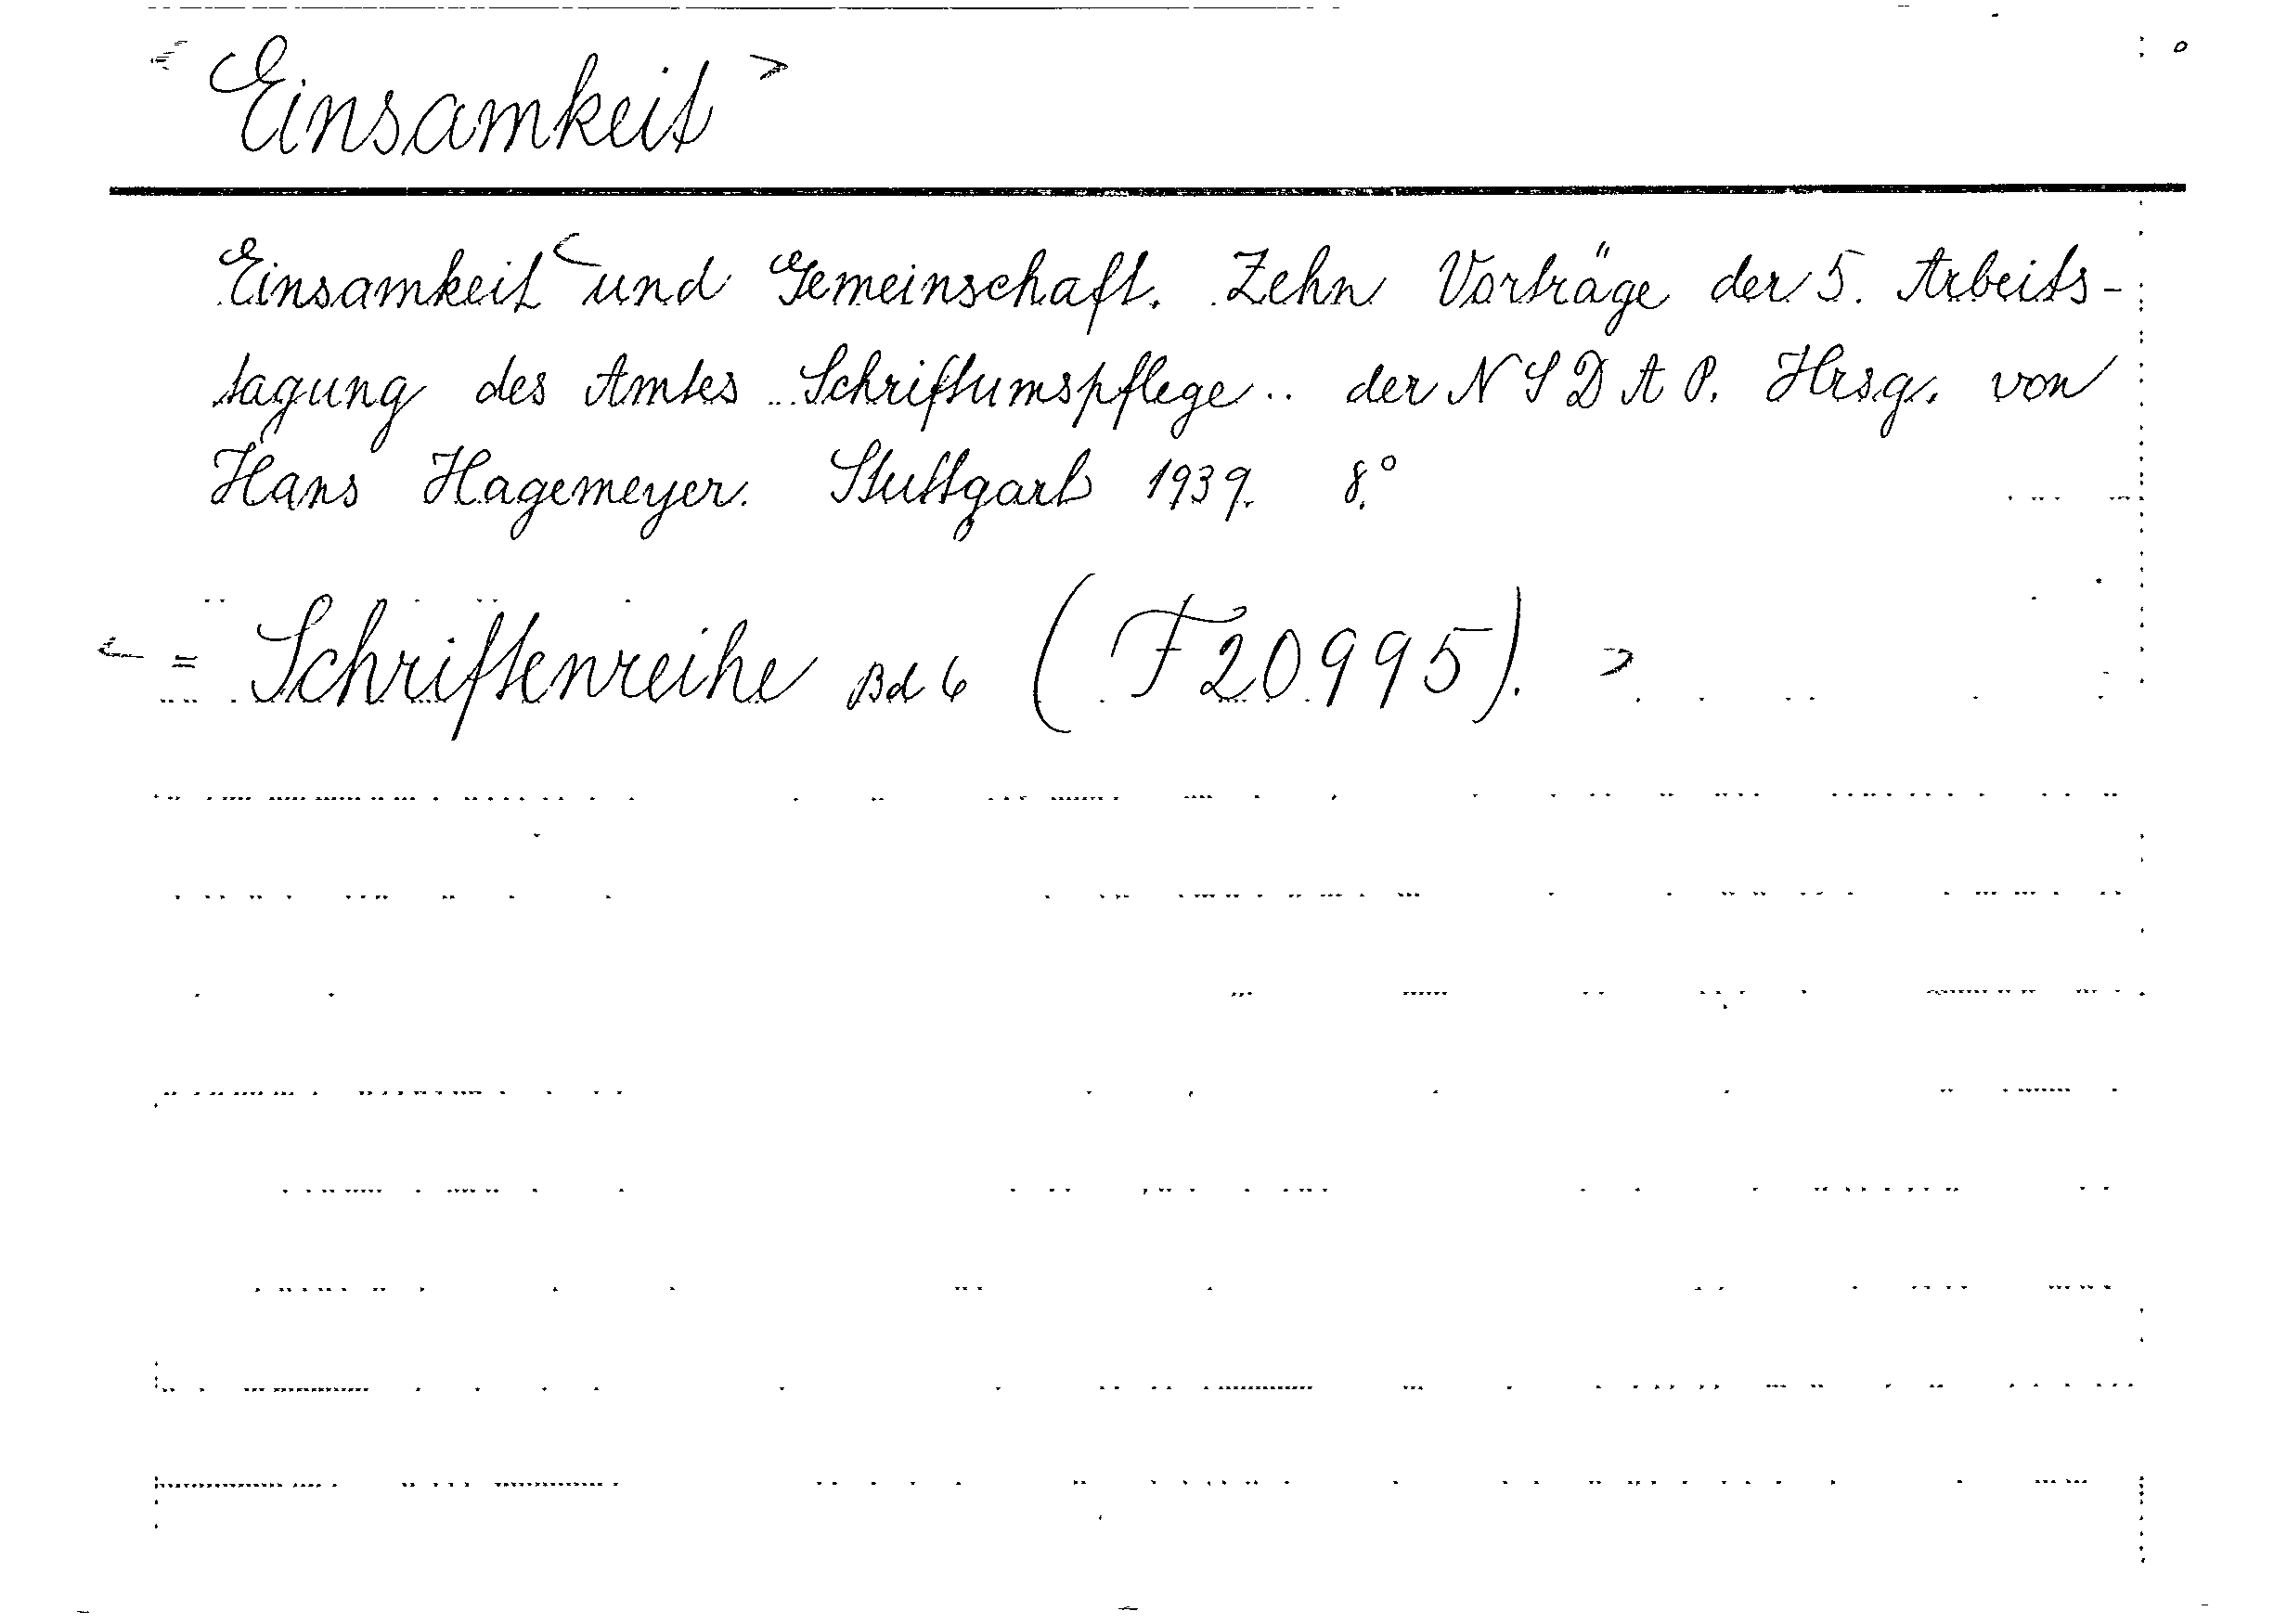 < Einsamkeit >
Einsamkeit < und Gemeinschaft. Zehn Vorträge der 5. Arbeits-
tagung des Amtes .. Schriftumspflege .. der N S D A P. Hrsg. von
Hans Hagemeyer. Stuttgart 1939. 8.°
< = Schriftenreihe Bd 6 (F 20 995). >